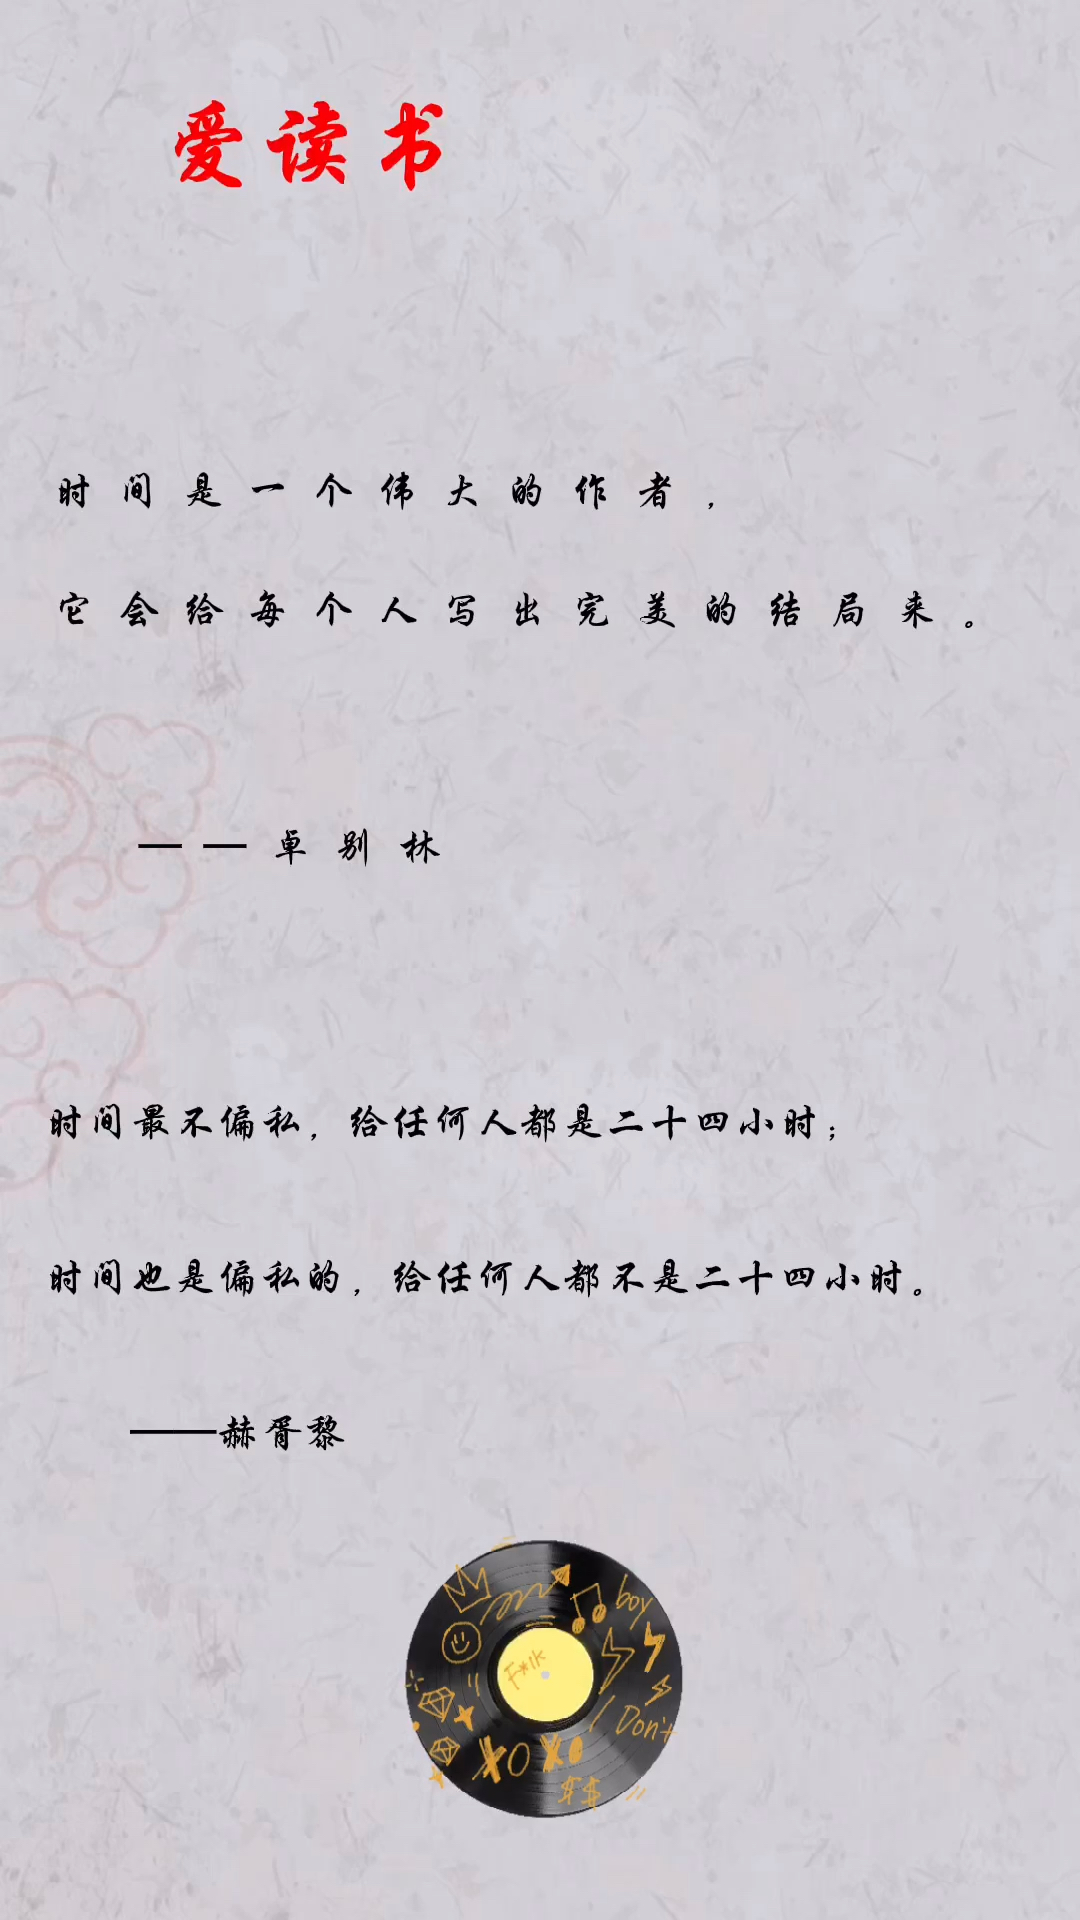 爱读书
时间是一个伟大的作者，
它会给每个人写出完美的结局来。
——卓别林
时间最不偏私，给任何人都是二十四小时；
时间也是偏私的，给任何人都不是二十四小时。
——赫胥黎
boy
F*1K
Don't
XOXO
$$